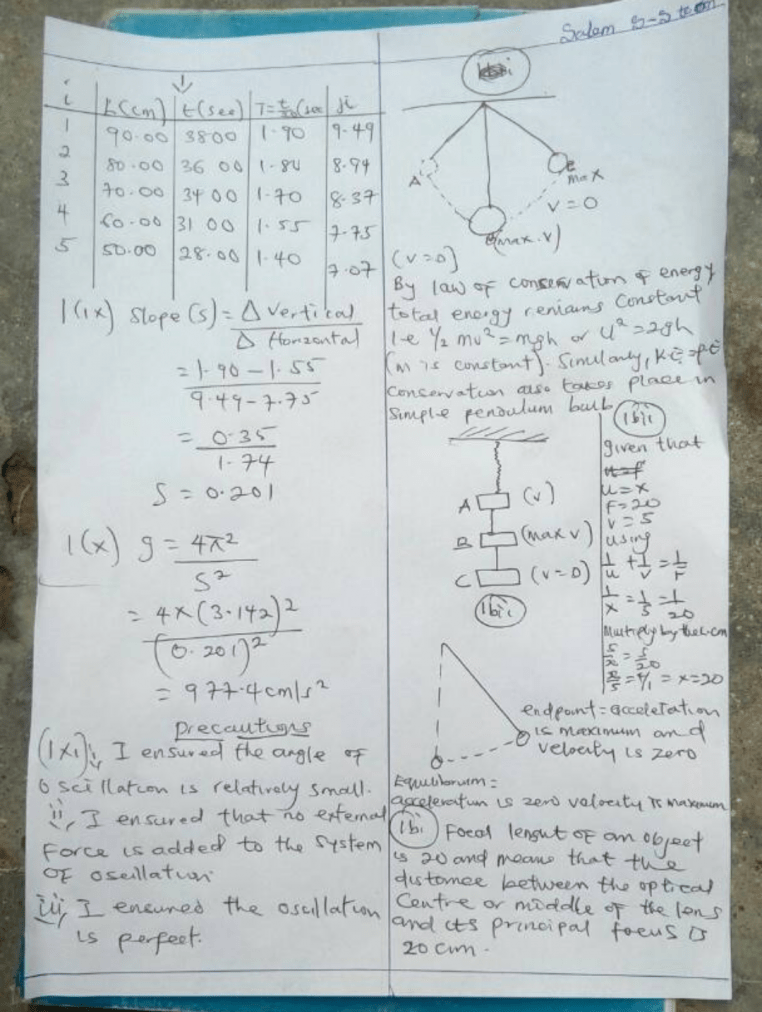 Salem
i
h(cm) t(sec) T=t/20(sec
1 90.00 3800 1.90 9.49
2 80.00 36 00 1.84 8.94
3 70.00 34 00 1.70 8.37
4 60.00 31 00 1.55 7.75
5 50.00 28.00 1.40 7.07
1(1x) Slope (s) = Δ Vertical
Δ Horizontal
= 1.90 - 1.55
9.49 - 7.75
= 0.35
1.74
S = 0.201
1(x) g = 4π²
S²
= 4x(3.142)²
(0.201)²
= 977.4cm/s²
Precautions
(1xi) i, I ensured the angle of
oscillation is relatively small.
ii, I ensured that no external
force is added to the system
of oscillation
iii, I ensured the oscillation
is perfect.
A max
V=0
(max.v)
(v=0)
By law of conservation of energy
total energy remains constant
i.e ½ mv² = mgh or U² = 2gh
(m is constant). Similarly, K.E = PE
Conservation also takes place in
Simple pendulum bulb
A (v)
B (max v)
C (v=0)
1bi
1bii
given that
u=x
F=20
v=5
using
1/u + 1/v = 1/F
1/x = 1/5 = 1/20
Multiply by the L.cm
5/x = 5/20
= x=20
endpoint = acceleration
is maximum and
velocity is zero
Equilibrium =
acceleration is zero velocity is maximum
1bi Focal lenght of an object
is 20 and means that the
distance between the optical
Centre or middle of the lens
and its principal focus is
20cm.